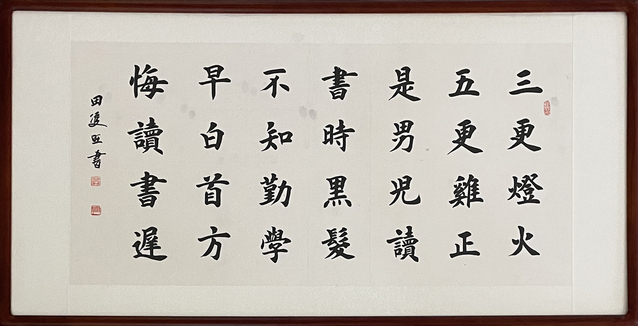 三更燈火
五更雞正
是男兒讀
書時黑髮
不知勤學
早白首方
悔讀書遲
田 書